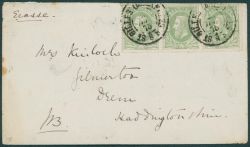 Ecosse.
Mrs Kinloch
Gilmerton
Drem
Haddingtonshire
N.B.